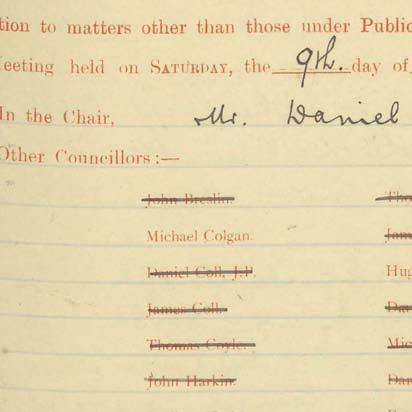 tion to matters other than those under Public
eeting held on SATURDAY, the 9th. day of
In the Chair, Mr. Daniel
Other Councillors:—
John Breslin. Tho
Michael Colgan. Jam
Daniel Coll, J.P. Hug
James Coll. Da
Thomas Coyle. Mic
John Harkin. Dan